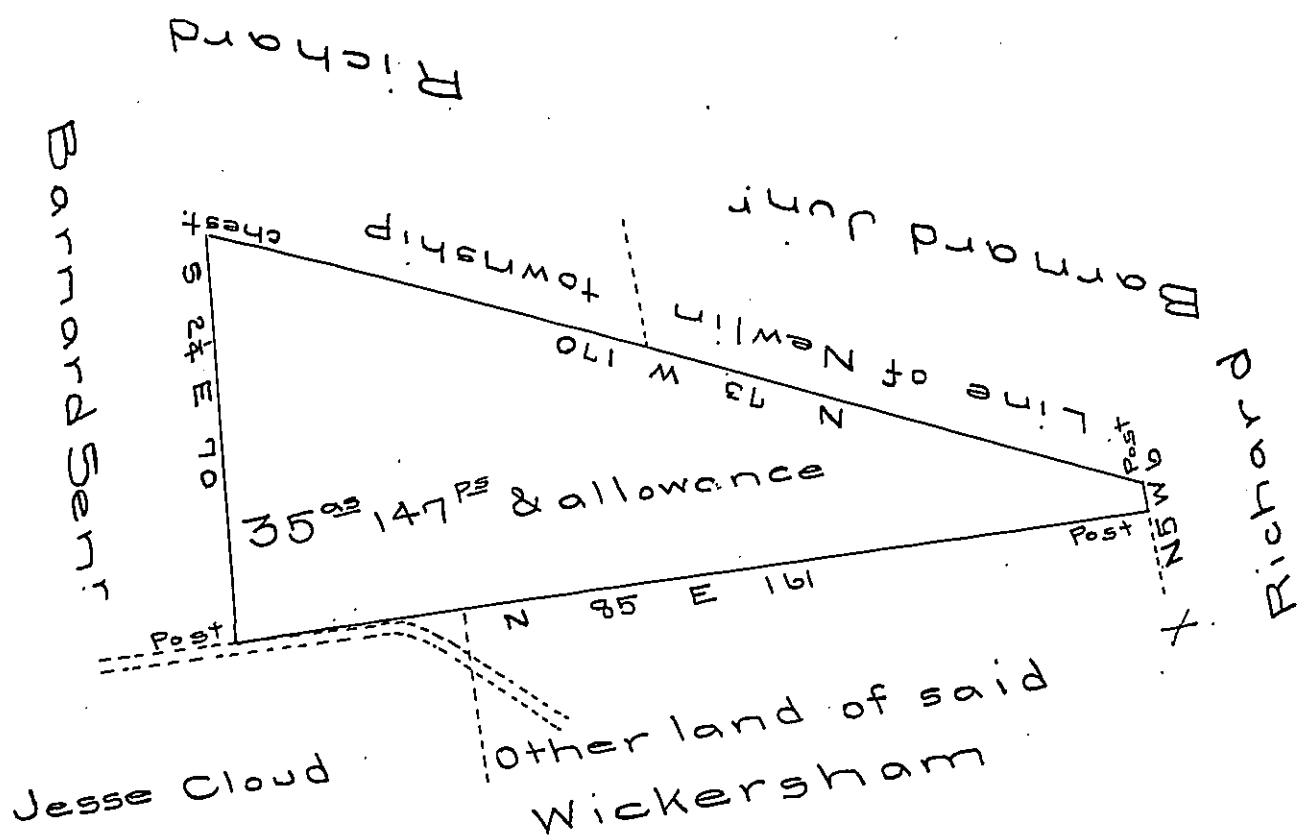 Richard
Barnard Senr
Barnard Junr
Richard
chest.
township
Line of Newlin
S 2¼ E 70
N 73 W 170
Post
N 5 W 6
35 as 147 ps & allowance
Post
N 85 E 161
Post
X
Jesse Cloud
Other land of said
Wickersham